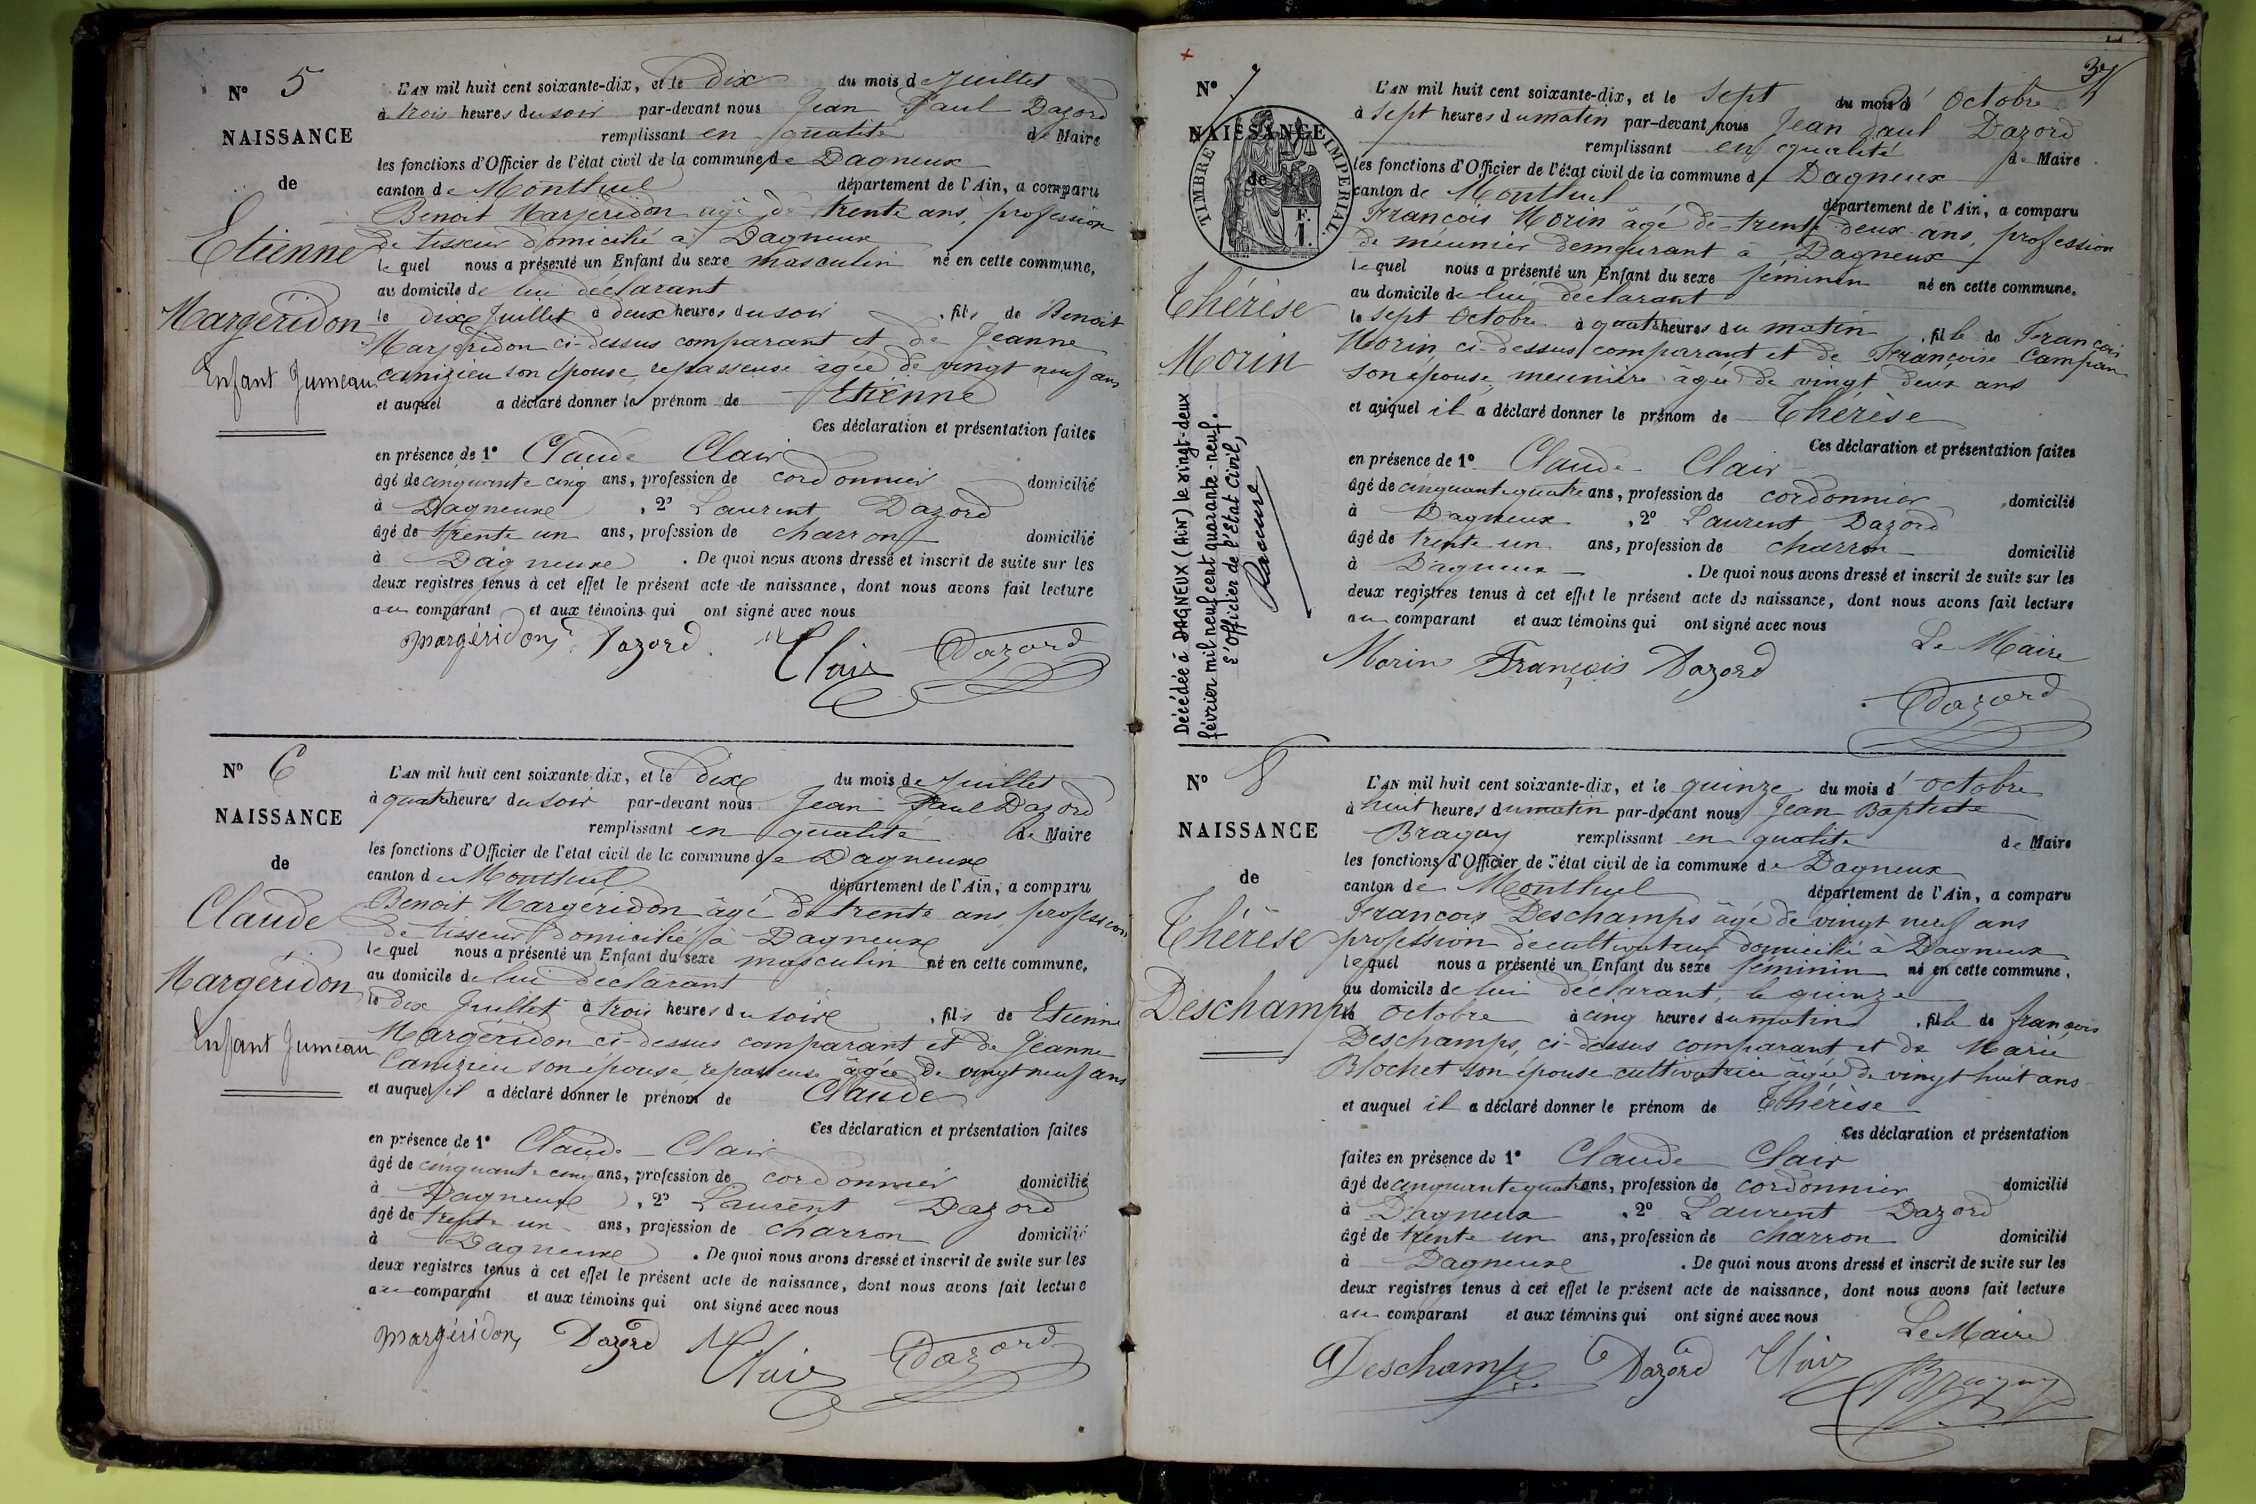 N° 5
NAISSANCE
de
Etienne
Margéridon
Enfant Jumeau
L'AN mil huit cent soixante-dix, et le dix du mois de Juillet
à trois heures du soir par-devant nous Jean Paul Dazord
remplissant en qualité de Maire
les fonctions d'Officier de l'état civil de la commune de Dagneux
canton de Montluel département de l'Ain, a comparu
Benoit Margeridon agé de trente ans, profession
de tisseur domicilié à Dagneux
le quel nous a présenté un Enfant du sexe masculin né en cette commune,
au domicile de lui déclarant
le dix Juillet à deux heures du soir, fils de Benoit
Margeridon ci-dessus comparant et de Jeanne
Canizieu son épouse, repasseuse âgée de vingt neuf ans
et auquel a déclaré donner le prénom de Etienne
Ces déclaration et présentation faites
en présence de 1° Claude Clair
âgé de cinquante cinq ans, profession de cordonnier domicilié
à Dagneux, 2° Laurent Dazord
âgé de trente un ans, profession de charron domicilié
à Dagneux. De quoi nous avons dressé et inscrit de suite sur les
deux registres tenus à cet effet le présent acte de naissance, dont nous avons fait lecture
au comparant et aux témoins qui ont signé avec nous
margéridon Dazord Clair Dazord
N° 6
NAISSANCE
de
Claude
Margéridon
Enfant Jumeau
L'AN mil huit cent soixante-dix, et le dix du mois de Juillet
à quatre heures du soir par-devant nous Jean Paul Dazord
remplissant en qualité de Maire
les fonctions d'Officier de l'état civil de la commune de Dagneux
canton de Montluel département de l'Ain, a comparu
Benoit Margeridon âgé de trente ans, profession
de tisseur domicilié à Dagneux
le quel nous a présenté un Enfant du sexe masculin né en cette commune,
au domicile de lui déclarant
le dix Juillet à trois heures du soir, fils de Etienne
Margéridon ci-dessus comparant et de Jeanne
Canizieu son épouse, repasseuse âgée de vingt neuf ans
et auquel il a déclaré donner le prénom de Claude
Ces déclaration et présentation faites
en présence de 1° Claude Clair
âgé de cinquante cinq ans, profession de cordonnier domicilié
à Dagneux, 2° Laurent Dazord
âgé de trente un ans, profession de charron domicilié
à Dagneux. De quoi nous avons dressé et inscrit de suite sur les
deux registres tenus à cet effet le présent acte de naissance, dont nous avons fait lecture
au comparant et aux témoins qui ont signé avec nous
margéridon Dazord Clair Dazord
N° 7
NAISSANCE
de
TIMBRE IMPERIAL.
F.
1.
Thérèse
Morin
Décédée à DAGNEUX (AIN) le vingt-deux
février mil neuf cent quarante-neuf.
L'Officier de l'Etat Civil,
L'AN mil huit cent soixante-dix, et le sept du mois d' Octobre
à sept heures du matin par-devant nous Jean Paul Dazord
remplissant en qualité de Maire
les fonctions d'Officier de l'état civil de la commune d Dagneux
canton de Montluel département de l'Ain, a comparu
François Morin âgé de trente deux ans, profession
de meunier demeurant à Dagneux
le quel nous a présenté un Enfant du sexe féminin né en cette commune.
au domicile de lui déclarant
le sept Octobre à quatre heures du matin, fille de François
Morin, ci-dessus comparant et de Françoise Campan
son épouse, meunière âgée de vingt deux ans
et auquel il a déclaré donner le prénom de Thérèse
Ces déclaration et présentation faites
en présence de 1° Claude Clair
âgé de cinquante quatre ans, profession de cordonnier, domicilié
à Dagneux, 2° Laurent Dazord
âgé de trente un ans, profession de charron domicilié
à Dagneux. De quoi nous avons dressé et inscrit de suite sur les
deux registres tenus à cet effet le présent acte de naissance, dont nous avons fait lecture
au comparant et aux témoins qui ont signé avec nous
Le Maire
Morin François Dazord
Dazord
N° 8
NAISSANCE
de
Thérèse
Deschamps
L'AN mil huit cent soixante-dix, et le quinze du mois d' octobre
à huit heures du matin par-devant nous Jean Baptiste
Braguy remplissant en qualité de Maire
les fonctions d'Officier de l'état civil de la commune de Dagneux
canton de Montluel département de l'Ain, a comparu
François Deschamps âgé de vingt neuf ans
profession de cultivateur domicilié à Dagneux
le quel nous a présenté un Enfant du sexe féminin né en cette commune,
au domicile de lui déclarant, le quinze
octobre à cinq heures du matin, fille de françois
Deschamps, ci-dessus comparant et de Marie
Blochet son épouse cultivatrice âgée de vingt huit ans
et auquel il a déclaré donner le prénom de Thérèse
Ces déclaration et présentation
faites en présence de 1° Claude Clair
âgé de cinquante quatre ans, profession de cordonnier domicilié
à Dagneux, 2° Laurent Dazord
âgé de trente un ans, profession de charron domicilié
à Dagneux. De quoi nous avons dressé et inscrit de suite sur les
deux registres tenus à cet effet le présent acte de naissance, dont nous avons fait lecture
au comparant et aux témoins qui ont signé avec nous
Le Maire
Deschamps Dazord Clair Braguy